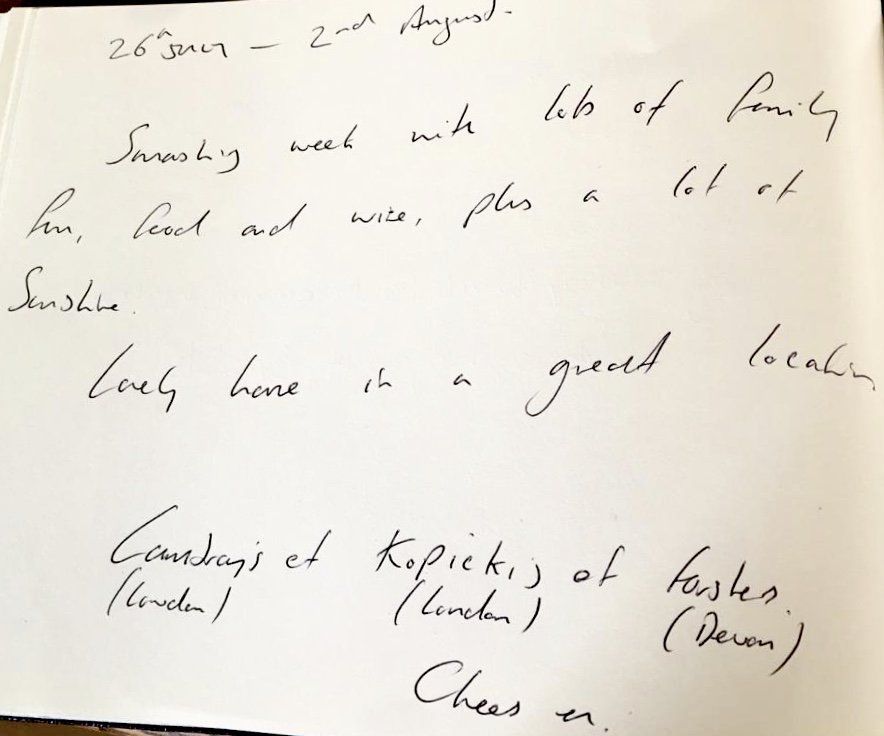 26th July - 2nd August.
Smashing week with lots of family
fun, food and wine, plus a lot of
Sunshine.
Lovely home in a great location
et Kopickis et Forsters.
(London) (London) (Devon)
Cheers